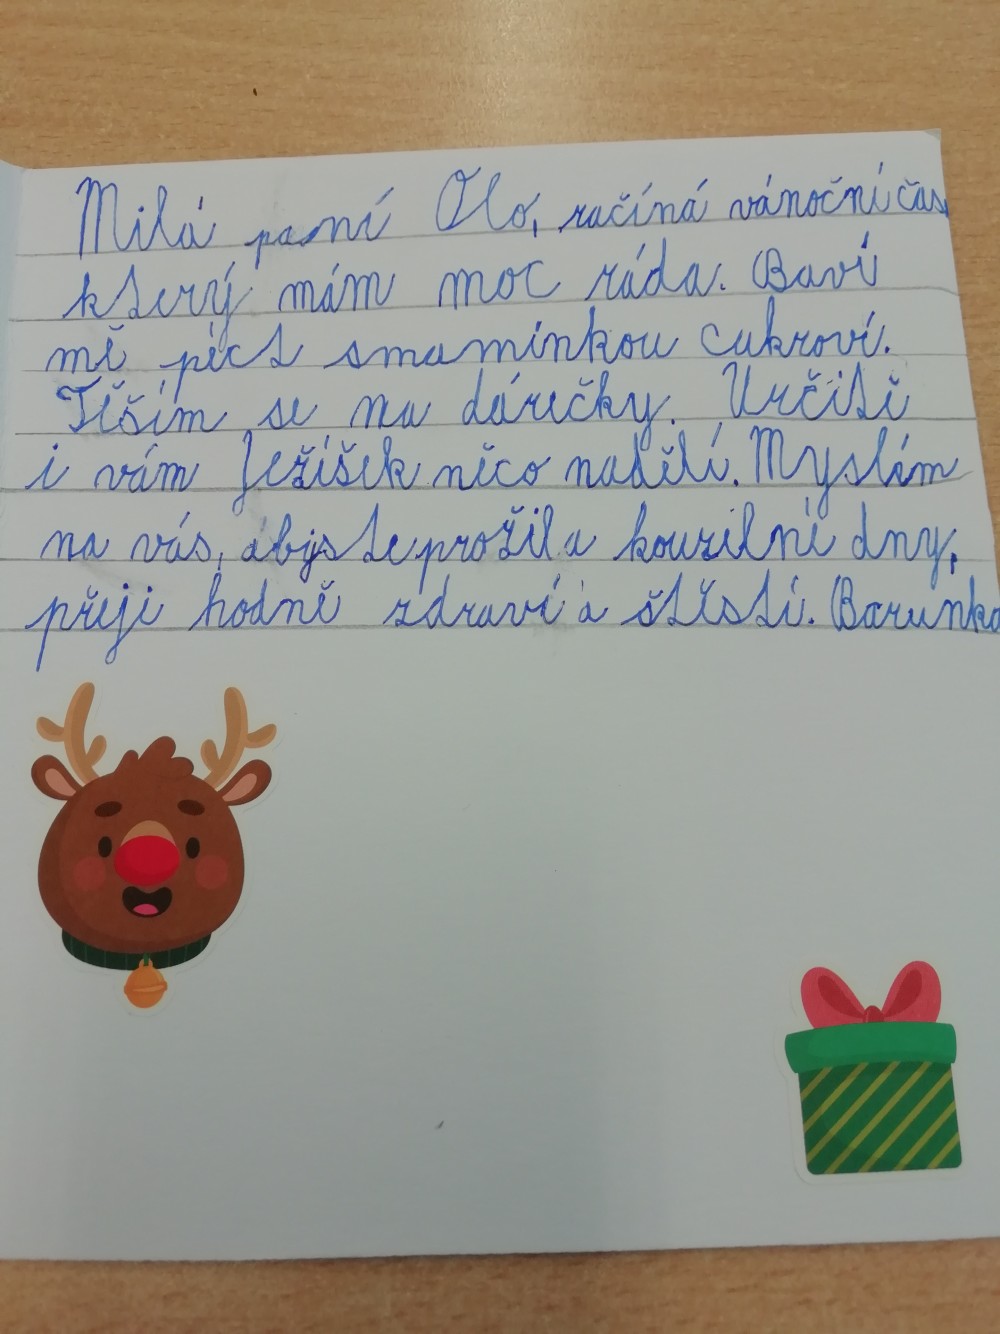 Milá paní Olo, začíná vánoční čas,
který mám moc ráda. Baví
mě péct smaminkou cukroví.
Těším se na dárečky. Určitě
i vám Ježíšek něco nadělí. Myslím
na vás, abyste prožila kouzelné dny,
přeji hodně zdraví a štěstí. Barunka